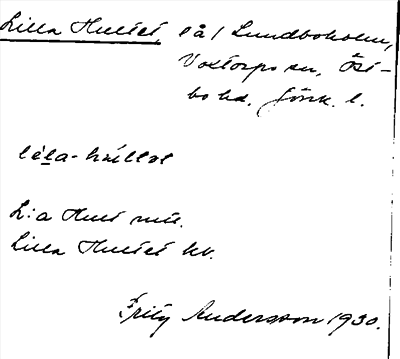 Lilla Hultet på/Lundboholm,
Voxtorps sn, Öst-
bo hd. Jönk. l.
lila-hultət
L:a Hult mtl.
Lilla Hultet kk.
Fritz Andersson 1930.